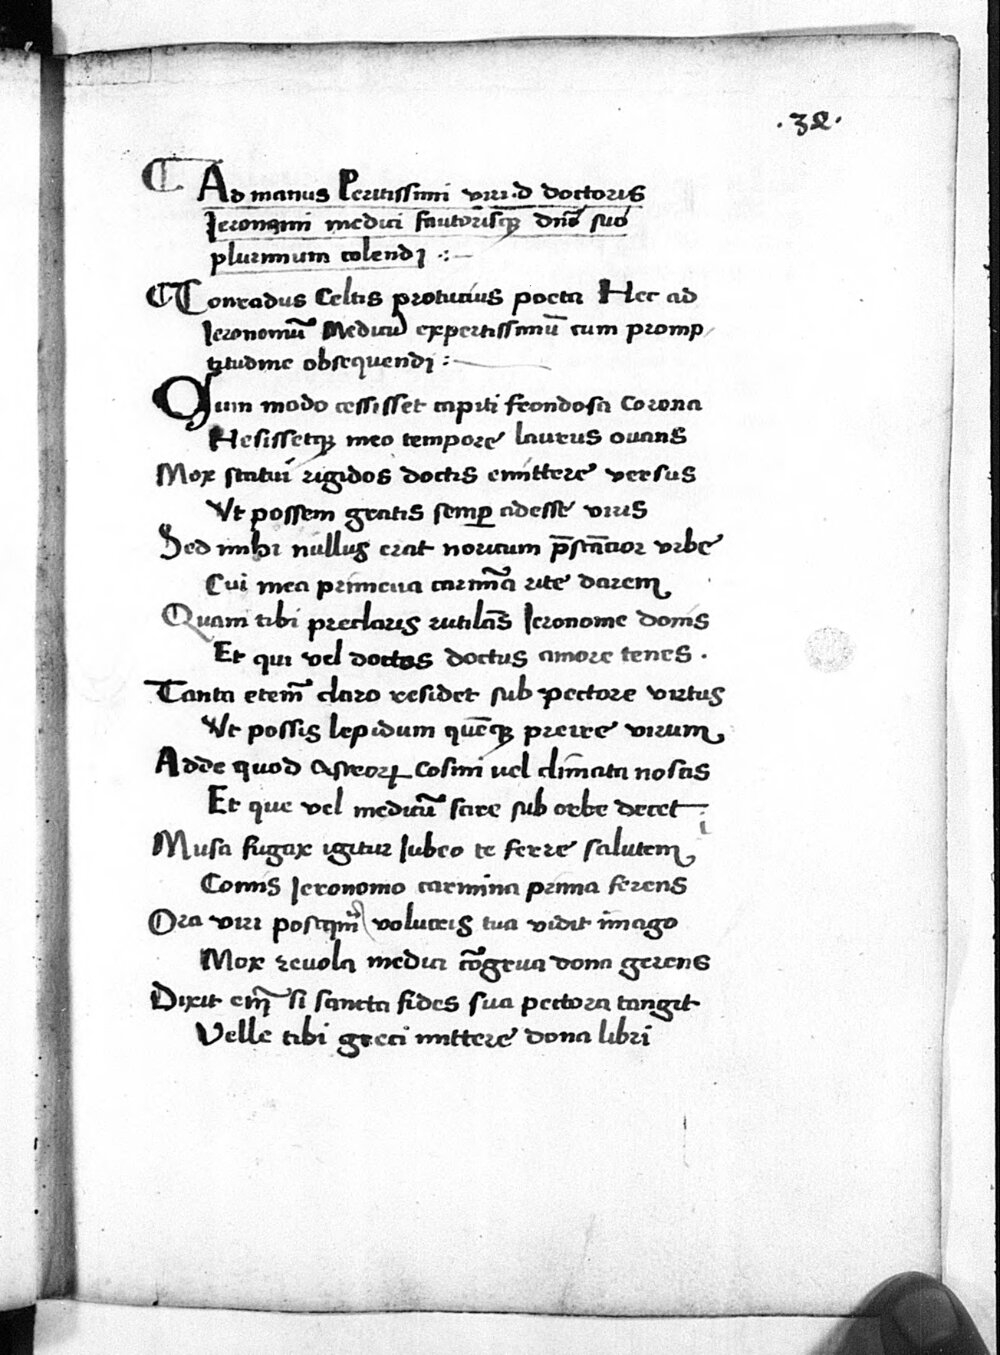 .32.
Ad manus Peritissimi viri .d doctoris
Ieronimi medici fautorisq₃ dño suo
plurimum colendi :~
Conradus Celtis protucius poeta Hec ad
Ieronomū Medicū expertissimū cum promp
titudine obsequendi :~
Qum modo cessisset capiti frondosa Corona
Hesissetq₃ meo tempore laurus ouans
Mox statui rigidos doctis emittere versus
Vt possem gratis semꝑ adesse viris
Sed mihi nullus erat noricum p̄stātior vrbe
Cui mea primeua carmīa rite darem
Quam tibi preclaris rutilās Ieronome donis
Et qui vel doctos doctus amore tenes .
Tanta etem̄ claro residet sub pectore virtus
Vt possis lepidum quēq₃ preire virum
Adde quod Astroꝝ Cosmi vel climata noscis
Et que vel medicū scire sub orbe decet
Musa fugax igitur Iubeo te ferre salutem
Comis Ieronomo carmina prima ferens
Ora viri postqm̄ volucris tua vidit imago
Mox reuola medici cōgrua dona gerens
Dixit em̄ si sancta fides sua pectora tangit
Velle tibi greci mittere dona libri